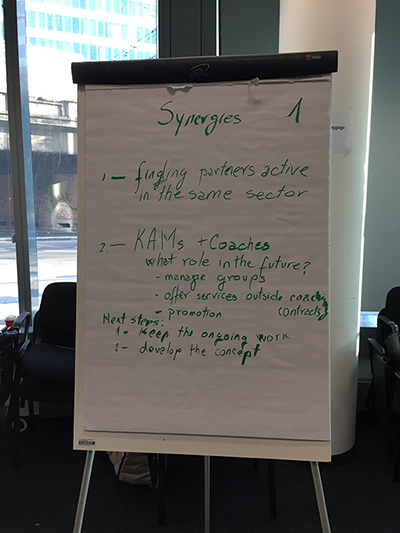 Synergies 1
1 - finding partners active
in the same sector
2. - KAMs + Coaches
what role in the future?
- manage groups
- offer services outside coach
contracts
- promotion
Next steps:
1- Keep the ongoing work
2- develop the concept